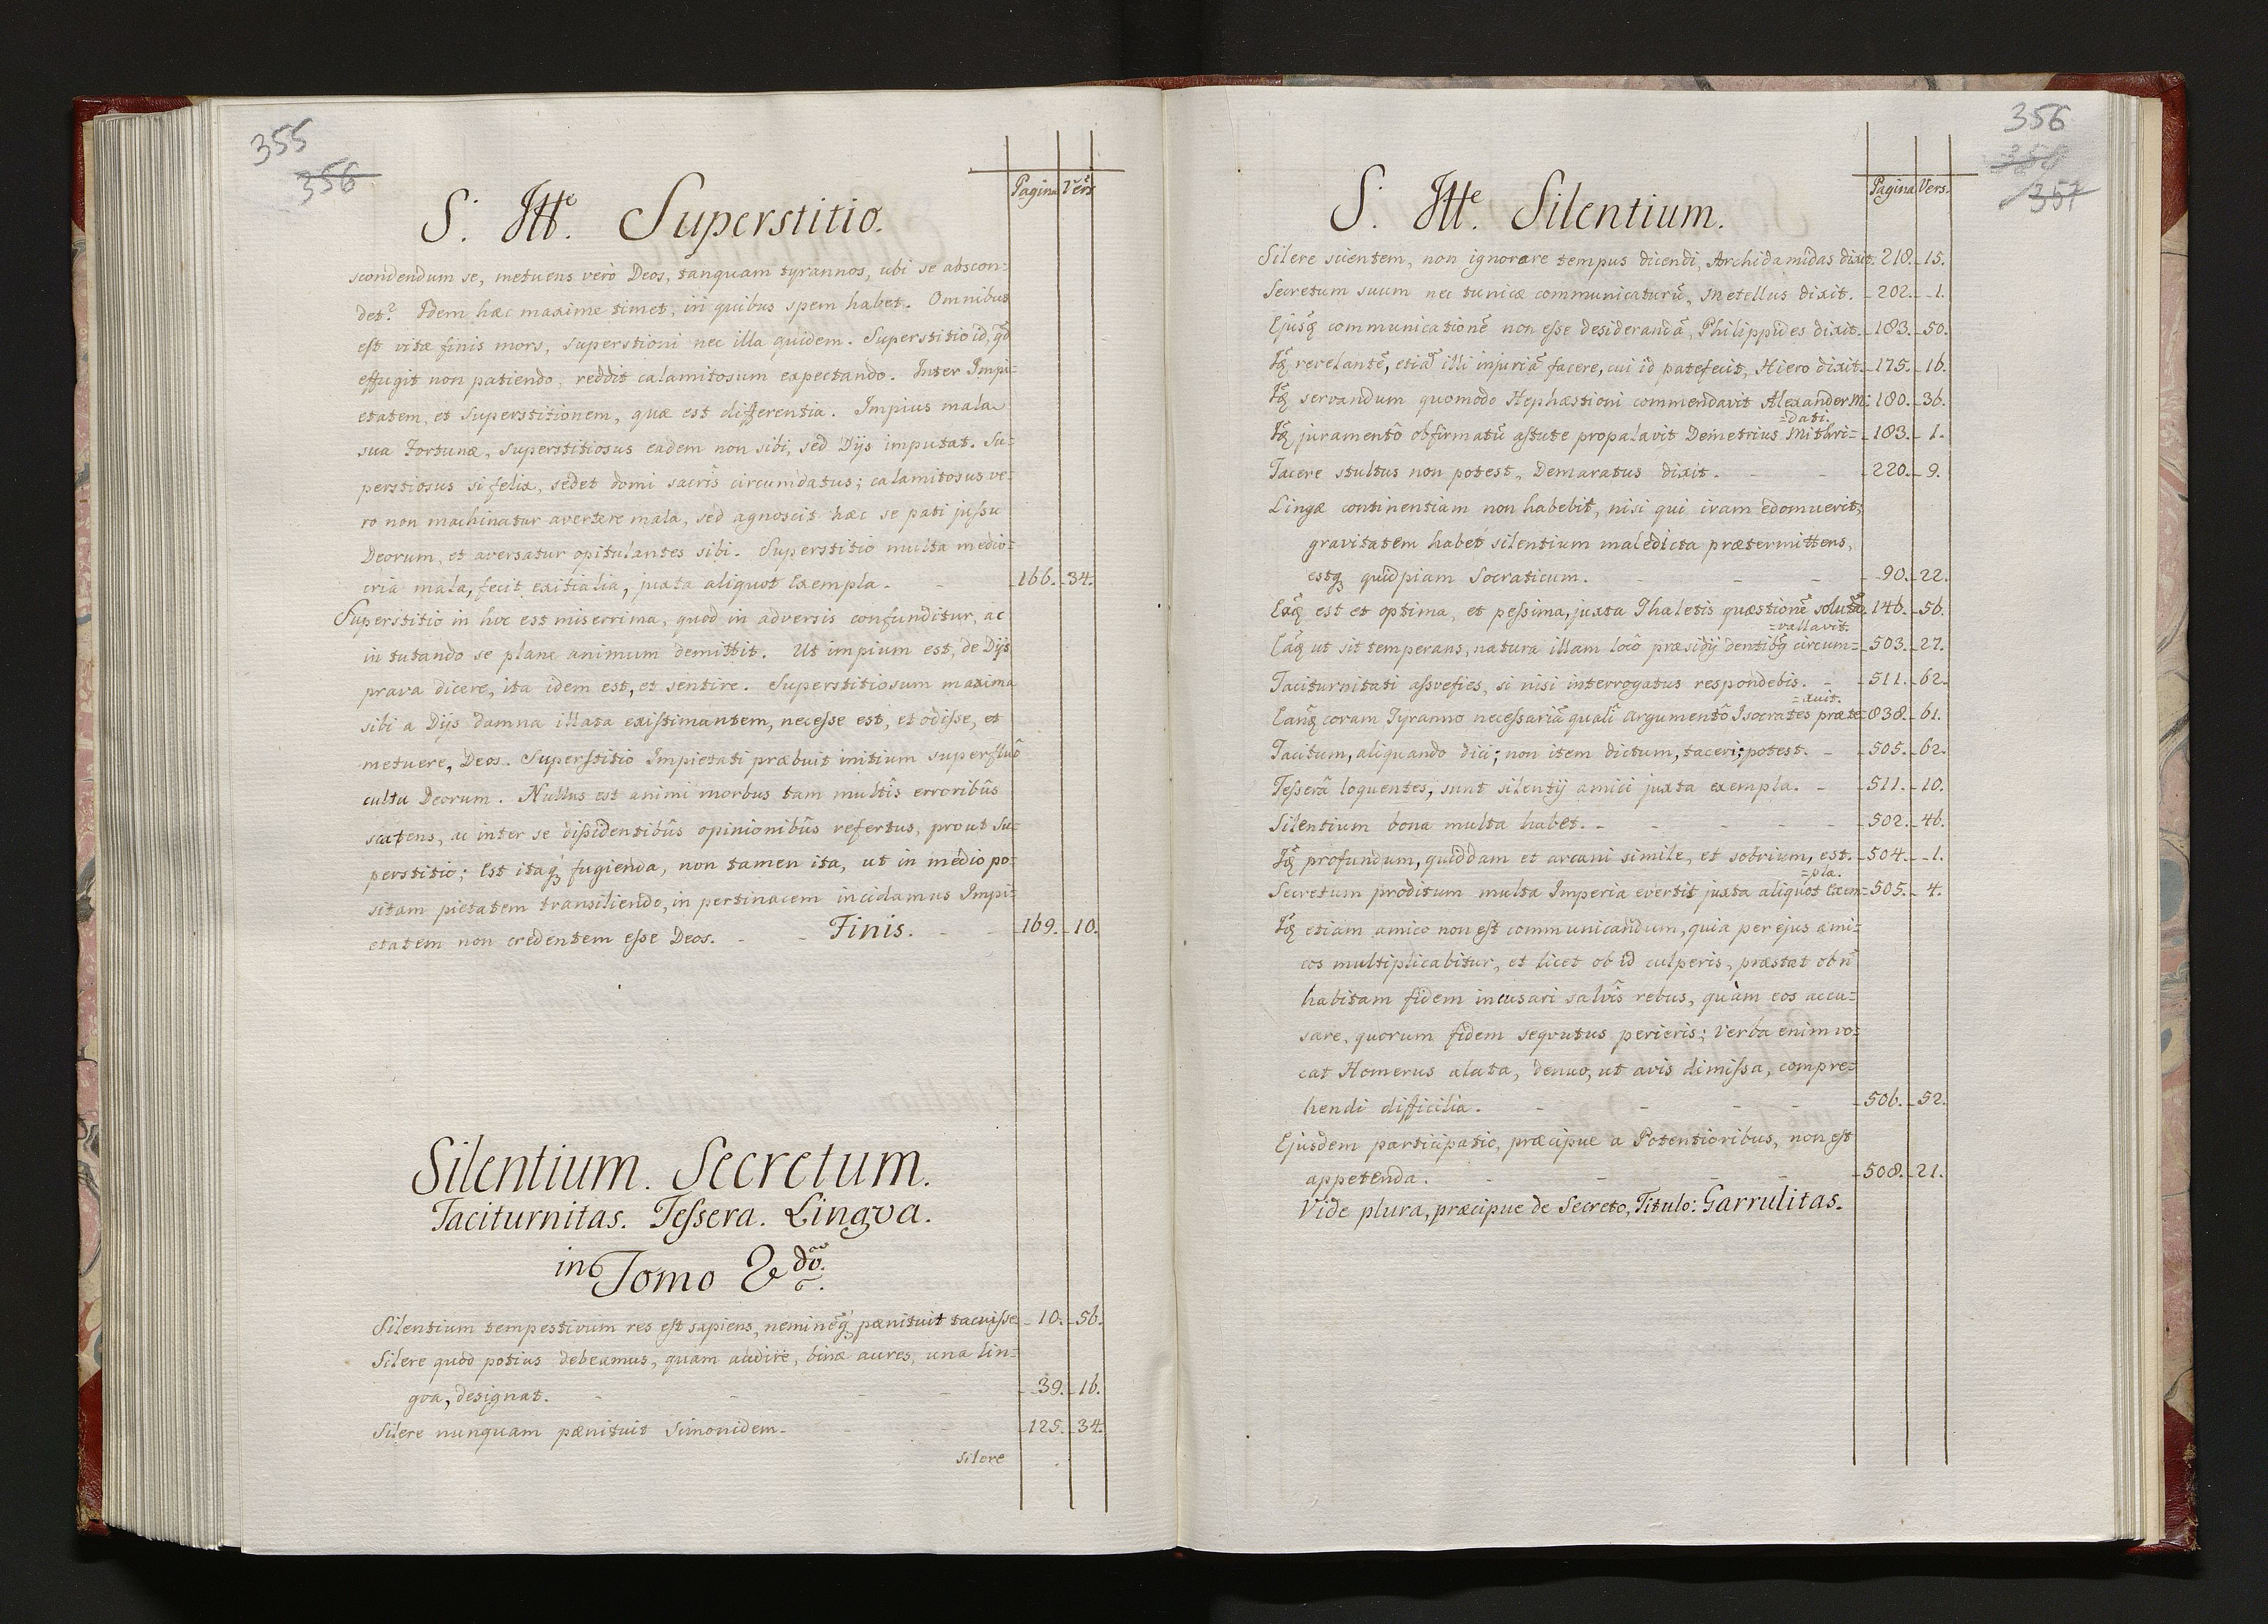 355
356
Pagina Vers
S. Itte. Superstitio.
scondendum se, metuens verò Deos, tanquam tyrannos, ubi se abscon=
det? Idem hæc maxime timet, in quibus spem habet. Omnibus
est vitæ finis mors, superstioni nec illa quidem. Superstitio id, qd
effugit non patiendo, reddit calamitosum expectando. Inter Impi=
etatem, et Superstitionem, quæ est differentia. Impius mala
sua Fortunæ, superstitiosus eadem non sibi, sed Dijs imputat. Su=
perstiosus si felix, sedet domi sacris circumdatus; calamitosus ve=
ro non machinatur avertere mala, sed agnoscit hæc se pati jussu
Deorum, et aversatur opitulantes sibi. Superstitio multa medio=
cria mala, fecit exitialia, juxta aliquot Exempla. - 166. 34.
Superstitio in hoc est miserrima, quod in adversis confunditur, ac
in tutando se plane animum demittit. Ut impium est, de Dijs
prava dicere, ita idem est, et sentire. Superstitiosum maxima
sibi a Dijs damna illata existimantem, necesse est, et odisse, et
metuere, Deos. Superstitio Impietati præbuit initium superfluô
cultu Deorum. Nullus est animi morbus tam multîs erroribûs
scatens, ac inter se dissidentibûs opinionibûs refertus, prout Su=
perstitio; Est itaq fugienda, non tamen ita, ut in medio po=
sitam pietatem transiliendo, in pertinacem incidamus Impi=
etatem non credentem esse Deos. - - Finis. - - 169. 10.
Silentium. Secretum.
Taciturnitas. Tessera. Lingva.
in Tomo 2do.
Silentium tempestivum res est sapiens, neminẽq pænituit tacuisse 10. 56.
Silere quod potius debeamus, quam audire, binæ aures, una lin=
gva, designat. - - - - 39. 16.
Silere nunquam pænituit Simonidem. - - 125. 34.
silere
356
356
357
Pagina Vers.
S. Itte. Silentium.
Silere scientem, non ignorare tempus dicendi, Archidamidas dixit. 218. 15.
Secretum suum nec tunicæ communicaturũ, Metellus dixit. 202. 1.
Ejusq communicationẽ non esse desiderandã, Philippides dixit. 183. 50.
Idq revelantẽ, etiã illi injuriã facere, cui id patefecit, Hiero dixit. 175. 16.
Idq servandum quomodo Hephæstioni commendavit Alexander M: 180. 36.
=dati.
Idq juramentô obfirmatũ astute propalavit Demetrius Mithri= 183. 1.
Tacere stultus non potest, Demaratus dixit. - - 220. 9.
Lingæ continentiam non habebit, nisi qui iram edomuerit;
gravitatem habet silentium maledicta prætermittens,
estq quidpiam Socraticum. - - - 90. 22.
Eaq est et optima, et pessima, juxta Thaletis quæstionẽ solutã. 146. 56.
=vallavit.
Eaq ut sit temperans, natura illam locô præsidij dentibq circum= 503. 27.
Taciturnitati assvesies, si nisi interrogatus respondebis. - 511. 62.
=xuit.
Eanq coram Tyranno necessariã quali argumentô Isocrates præte= 838. 61.
Tacitum, aliquando dici; non item dictum, taceri; potest. - 505. 62.
Tesserâ loquentes, sunt silentij amici juxta exempla. - 511. 10.
Silentium bona multa habet. - - - - - 502. 46.
Idq profundum, quiddam et arcani simile, et sobrium, est. 504. 1.
=pla.
Secretum proditum multa Imperia evertit juxta aliquot Exem= 505. 4.
Idq etiam amico non est communicandum, quia per ejus ami=
cos multiplicabitur, et licet ob id culperis, præstat ob ñ
habitam fidem incusari salvîs rebus, quàm eos accu=
sare, quorum fidem seqvutus perieris; Verba enim vo=
cat Homerus alata, denuo, ut avis dimissa, compre=
hendi difficilia. - - - - 506. 52.
Ejusdem participatio, præcipue a Potentioribus, non est
appetenda. - - - - 508. 21.
Vide plura, præcipue de Secreto, Titulo: Garrulitas.